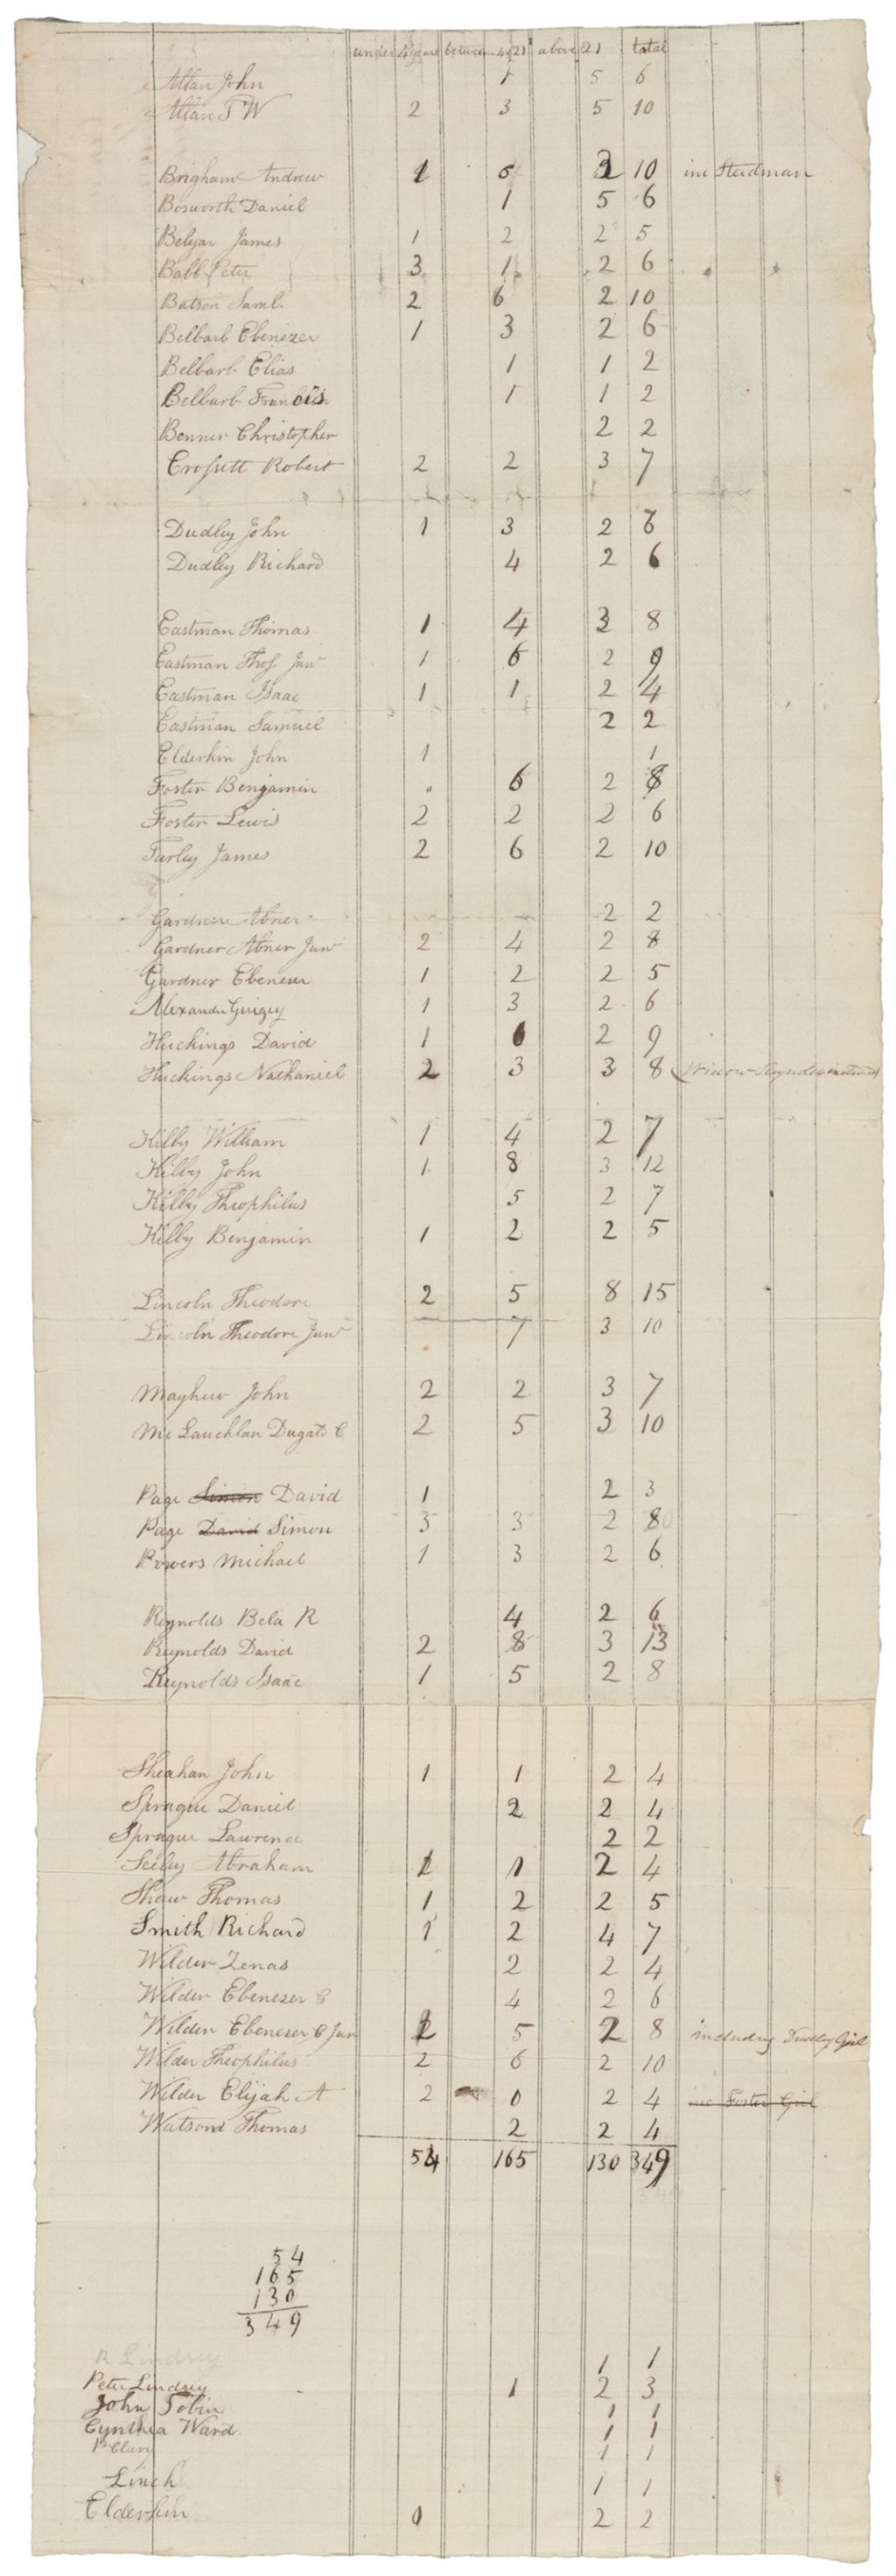 under 4 years between 4 & 21 above 21 total
Allan John 1 5 6
Allan T W 2 3 5 10
Brigham Andrew 2 10 inc Stedman
Bosworth Daniel 1 5 6
Belyar James 1 2 2 5
Babb Peter 3 1 2 6
Batson Saml. 2 6 2 10
Belbarb Ebenezer 1 3 2 6
Belbarb Elias 1 1 2
Belbarb Francois 1 1 2
Benner Christopher 2 2
Crossett Robert 2 2 3 7
Dudley John 1 3 2 6
Dudley Richard 4 2 6
Eastman Thomas 1 4 3 8
Eastman Thos Junr 1 6 2 9
Eastman Isaac 1 1 2 4
Eastman Samuel 2 2
Elderkin John 1 1
Foster Benjamin 6 2 8
Foster Lewis 2 2 2 6
Farley James 2 6 2 10
Gardner Abner 2 2
Gardner Abner Junr 2 4 2 8
Gardner Ebenezer 1 2 2 5
Alexander Guigey 1 3 2 6
Huckings David 1 6 2 9
Huckings Nathaniel 2 3 3 8 Widow included
Kilby William 1 4 2 7
Kilby John 1 8 3 12
Kilby Theophilus 5 2 7
Kilby Benjamin 1 2 2 5
Lincoln Theodore 2 5 8 15
Lincoln Theodore Junr 7 3 10
Mayhew John 2 2 3 7
Mc Lauchlan Dugald C 2 5 3 10
Page Simon David 1 2 3
Page David Simon 3 3 2 8
Powers Michael 1 3 2 6
Reynolds Bela R 4 2 6
Reynolds David 2 8 3 13
Reynolds Isaac 1 5 2 8
Sheahan John 1 1 2 4
Sprague Daniel 2 2 4
Sprague Lawrence 2 2
Seeley Abraham 1 1 2 4
Shaw Thomas 1 2 2 5
Smith Richard 1 2 4 7
Wilder Zenas 2 2 4
Wilder Ebenezer C 4 2 6
Wilder Ebenezer C Jun 5 2 8 including Dudley Girl
Wilder Theophilus 2 6 2 10
Wilder Elijah A 2 0 2 4 inc Foster Girl
Watson Thomas 2 2 4
54 165 130 349
54
165
130
349
R Lindsey 1 1
Peter Lindsey 1 2 3
John Tobin 1 1
Cynthia Ward. 1 1
P Clary 1 1
Linch 1 1
Elderkin 0 2 2